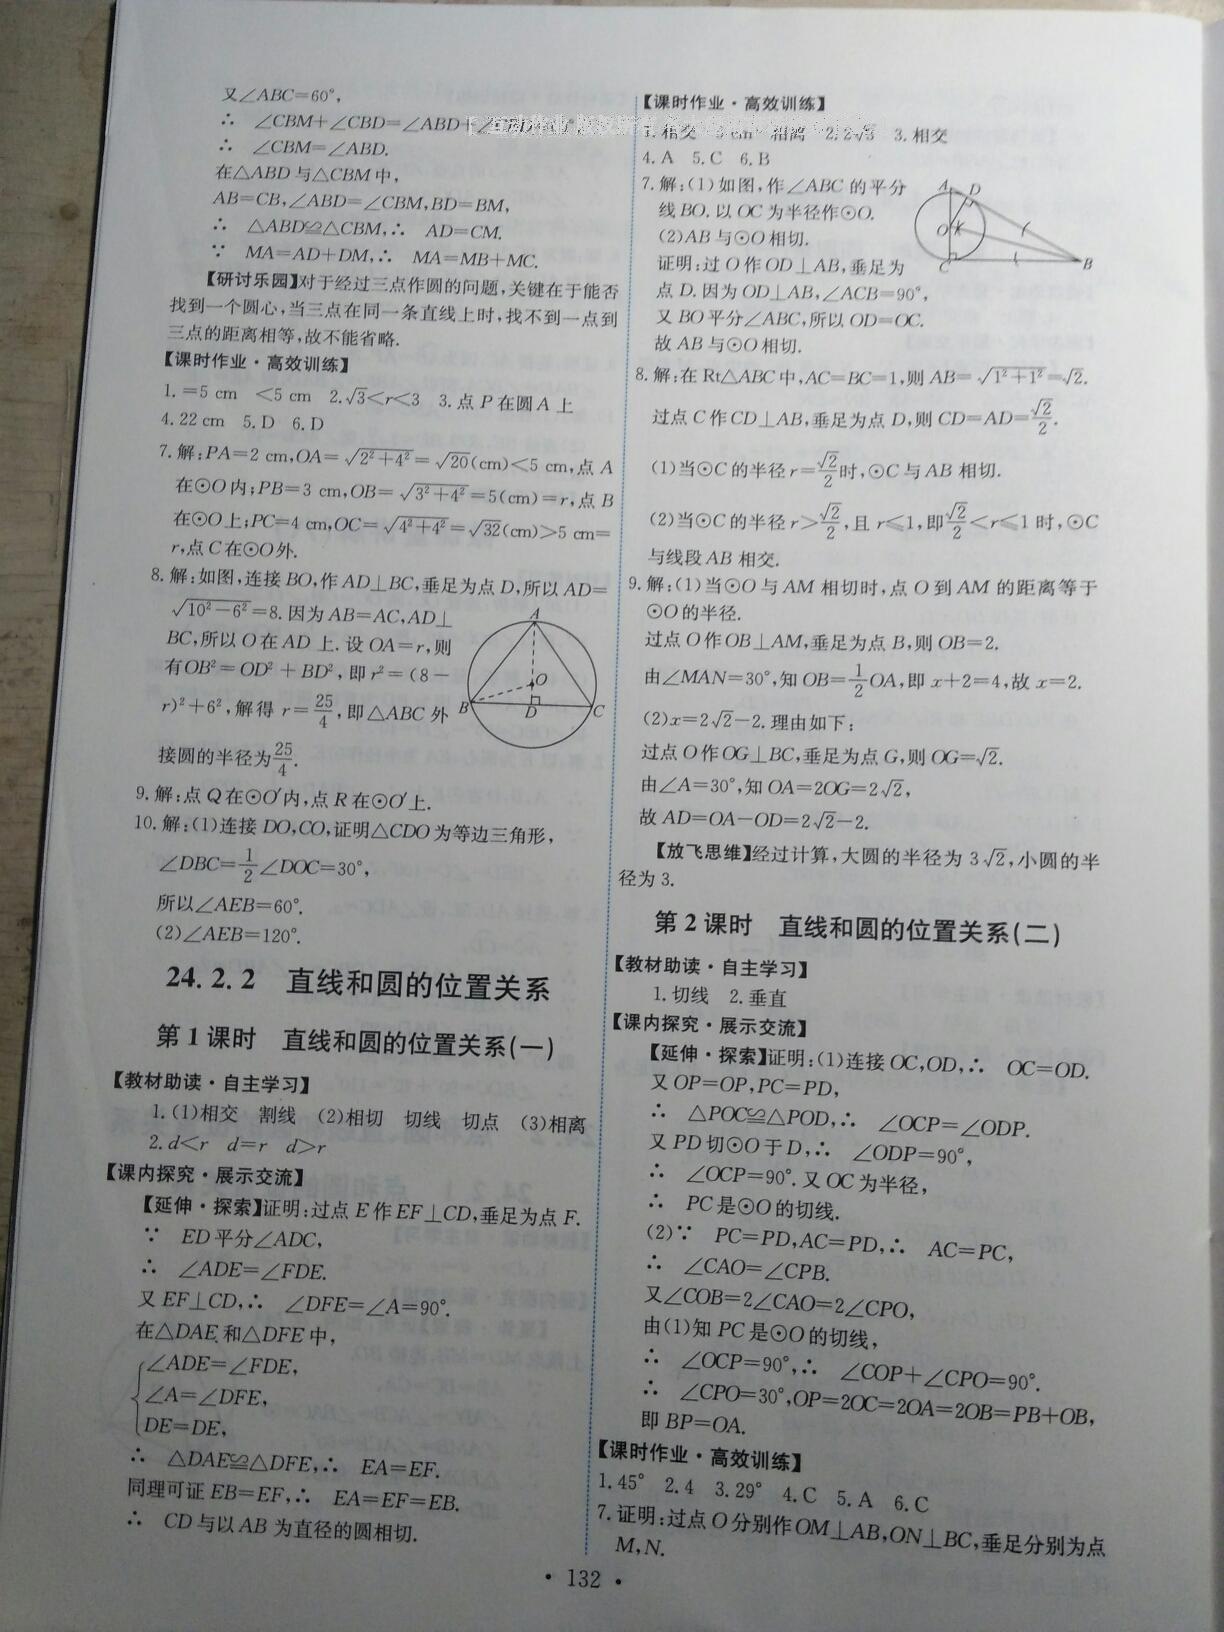 又∠ABC=60°,
∴ ∠CBM+∠CBD=∠ABD+
∴ ∠CBM=∠ABD.
在△ABD与△CBM中,
AB=CB,∠ABD=∠CBM,BD=BM,
∴ △ABD≌△CBM,∴ AD=CM.
∵ MA=AD+DM,∴ MA=MB+MC.
【研讨乐园】对于经过三点作圆的问题,关键在于能否
找到一个圆心,当三点在同一条直线上时,找不到一点到
三点的距离相等,故不能省略.
【课时作业·高效训练】
1.=5 cm <5 cm 2.√3<r<3 3.点P在圆A上
4.22 cm 5.D 6.D
7.解:PA=2 cm,OA=√(2²+4²)=√20(cm)<5 cm,点A
在⊙O内;PB=3 cm,OB=√(3²+4²)=5(cm)=r,点B
在⊙O上;PC=4 cm,OC=√(4²+4²)=√32(cm)>5 cm=
r,点C在⊙O外.
8.解:如图,连接BO,作AD⊥BC,垂足为点D,所以AD=
√(10²-6²)=8.因为AB=AC,AD⊥
BC,所以O在AD上.设OA=r,则
有OB²=OD²+BD²,即r²=(8-
r)²+6²,解得r=25/4,即△ABC外
接圆的半径为25/4.
A
O
B
D
C
9.解:点Q在⊙O′内,点R在⊙O′上.
10.解:(1)连接DO,CO,证明△CDO为等边三角形,
∠DBC=1/2∠DOC=30°,
所以∠AEB=60°.
(2)∠AEB=120°.
24.2.2 直线和圆的位置关系
第1课时 直线和圆的位置关系(一)
【教材助读·自主学习】
1.(1)相交 割线 (2)相切 切线 切点 (3)相离
2.d<r d=r d>r
【课内探究·展示交流】
【延伸·探索】证明:过点E作EF⊥CD,垂足为点F.
∵ ED平分∠ADC,
∴ ∠ADE=∠FDE.
又EF⊥CD,∴ ∠DFE=∠A=90°.
在△DAE和△DFE中,
∠ADE=∠FDE,
∠A=∠DFE,
DE=DE,
∴ △DAE≌△DFE,∴ EA=EF.
同理可证EB=EF,∴ EA=EF=EB.
∴ CD与以AB为直径的圆相切.
【课时作业·高效训练】
1.相交 相离 2.2√3 3.相交
4.A 5.C 6.B
7.解:(1)如图,作∠ABC的平分
线BO.以OC为半径作⊙O.
(2)AB与⊙O相切.
证明:过O作OD⊥AB,垂足为
点D.因为OD⊥AB,∠ACB=90°,
又BO平分∠ABC,所以OD=OC.
故AB与⊙O相切.
A
D
O
C
B
8.解:在Rt△ABC中,AC=BC=1,则AB=√(1²+1²)=√2.
过点C作CD⊥AB,垂足为点D,则CD=AD=√2/2.
(1)当⊙C的半径r=√2/2时,⊙C与AB相切.
(2)当⊙C的半径r>√2/2,且r≤1,即√2/2<r≤1时,⊙C
与线段AB相交.
9.解:(1)当⊙O与AM相切时,点O到AM的距离等于
⊙O的半径.
过点O作OB⊥AM,垂足为点B,则OB=2.
由∠MAN=30°,知OB=1/2OA,即x+2=4,故x=2.
(2)x=2√2-2.理由如下:
过点O作OG⊥BC,垂足为点G,则OG=√2.
由∠A=30°,知OA=2OG=2√2,
故AD=OA-OD=2√2-2.
【放飞思维】经过计算,大圆的半径为3√2,小圆的半
径为3.
第2课时 直线和圆的位置关系(二)
【教材助读·自主学习】
1.切线 2.垂直
【课内探究·展示交流】
【延伸·探索】证明:(1)连接OC,OD,∴ OC=OD.
又OP=OP,PC=PD,
∴ △POC≌△POD,∴ ∠OCP=∠ODP.
又PD切⊙O于D,∴ ∠ODP=90°,
∴ ∠OCP=90°.又OC为半径,
∴ PC是⊙O的切线.
(2)∵ PC=PD,AC=PD,∴ AC=PC,
∴ ∠CAO=∠CPB.
又∠COB=2∠CAO=2∠CPO,
由(1)知PC是⊙O的切线,
∴ ∠OCP=90°,∴ ∠COP+∠CPO=90°.
∴ ∠CPO=30°,OP=2OC=2OA=2OB=PB+OB,
即BP=OA.
【课时作业·高效训练】
1.45° 2.4 3.29° 4.C 5.A 6.C
7.证明:过点O分别作OM⊥AB,ON⊥BC,垂足分别为点
M,N.
·132·